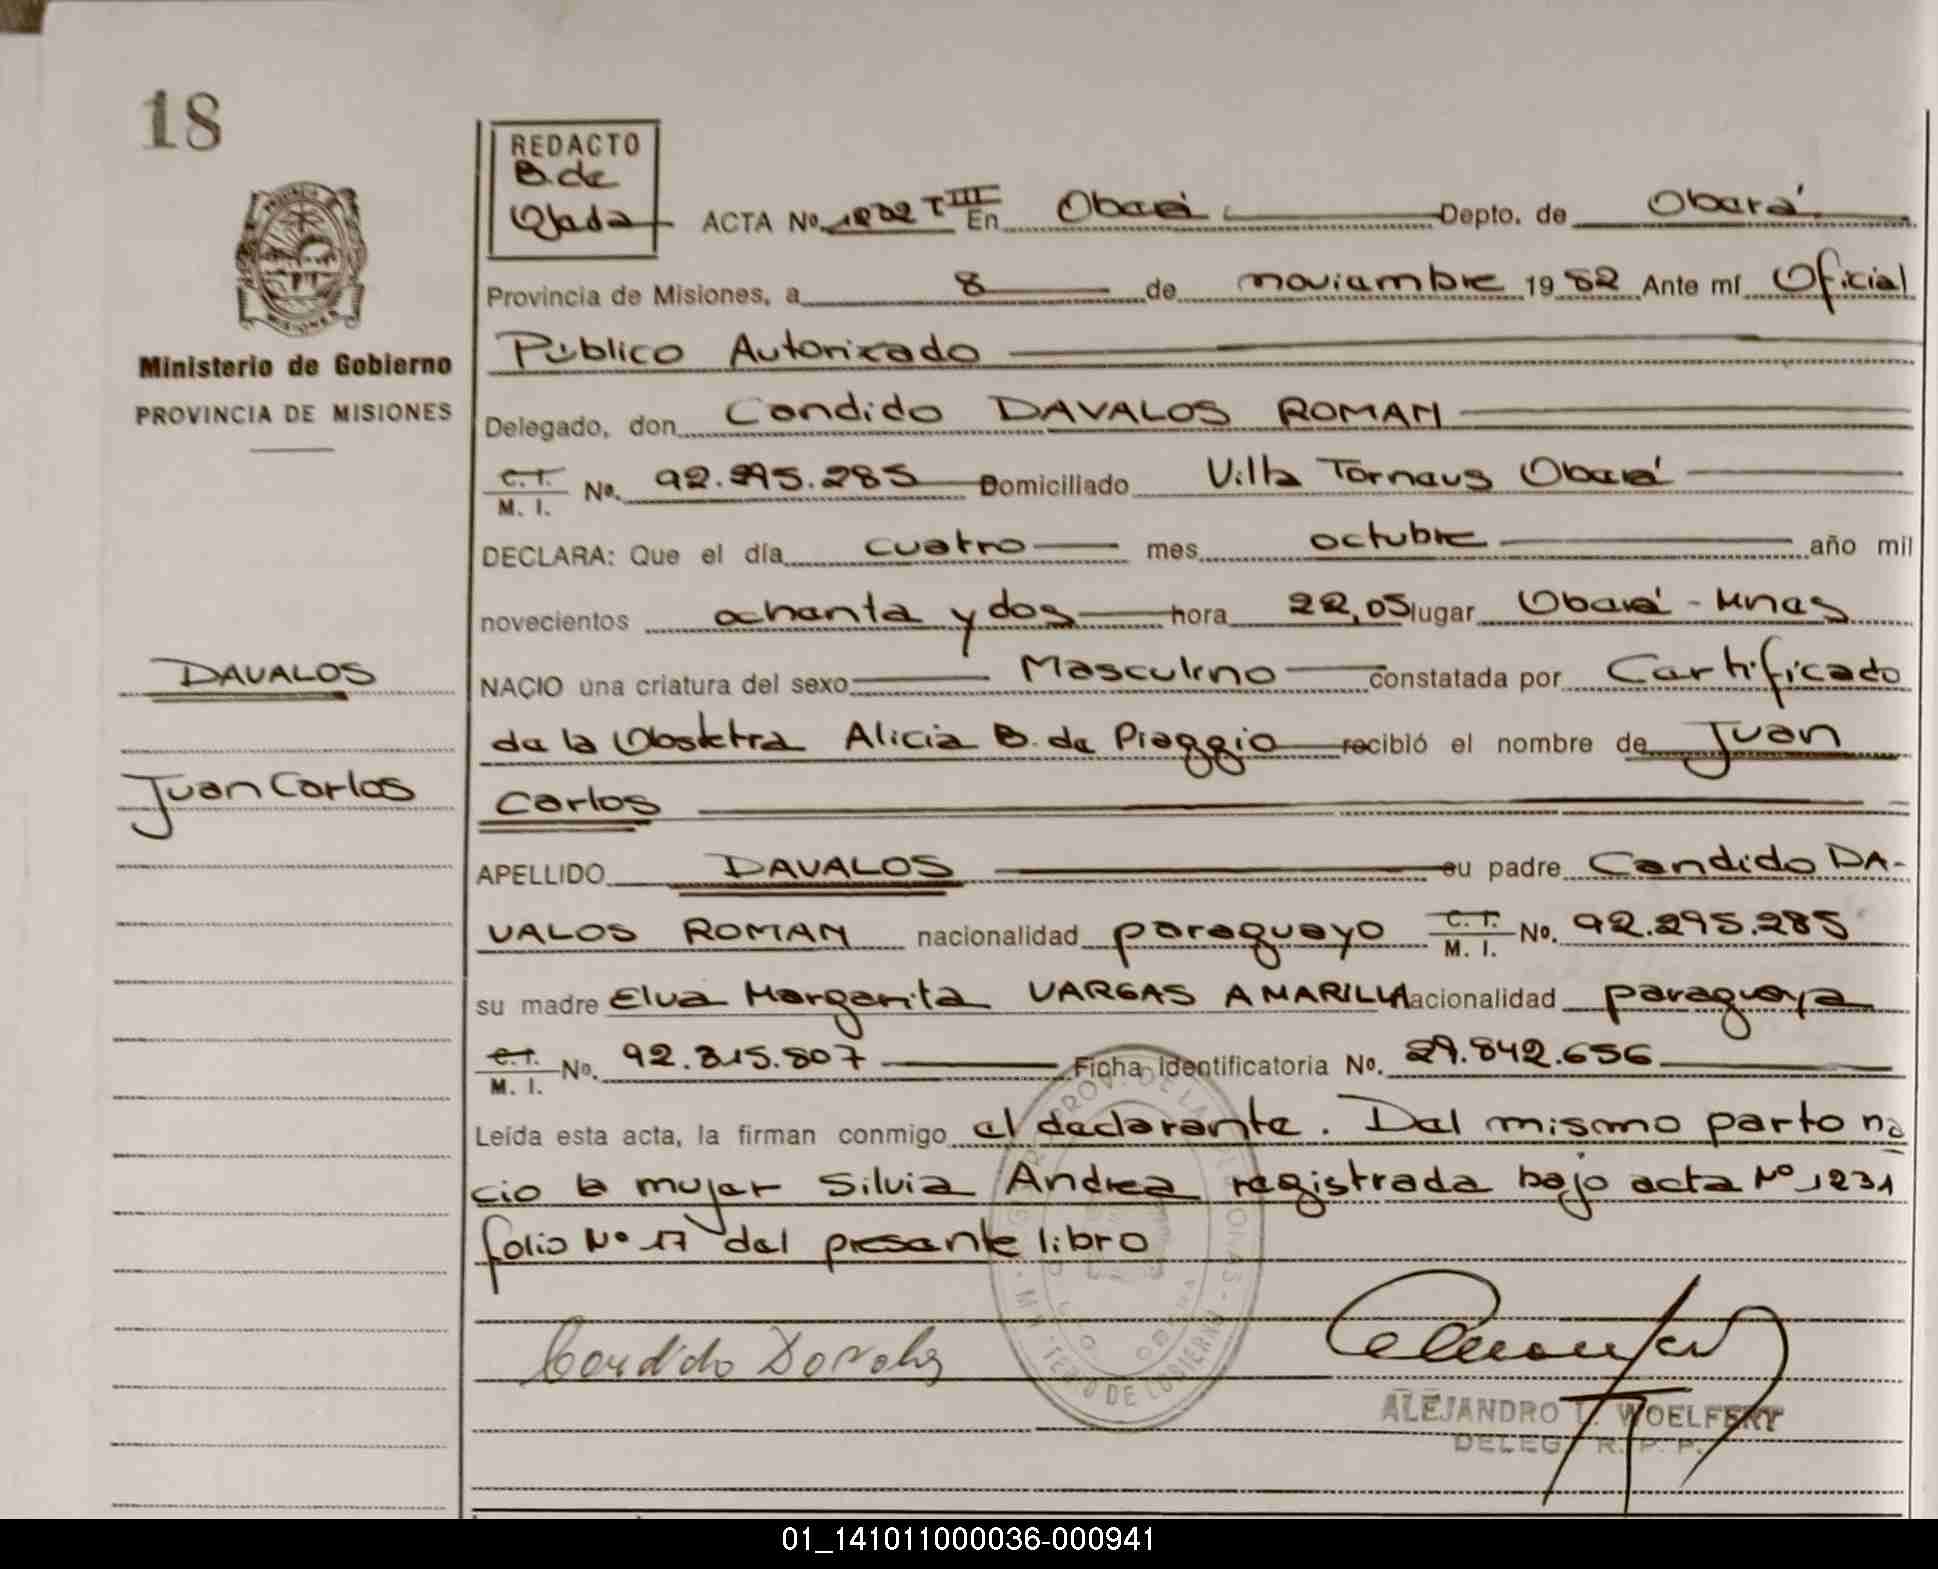 18
REDACTO
B. de
Ojeda
ACTA Nº 1232 T III En Oberá Depto. de Oberá
Provincia de Misiones, a 8 de noviembre 1982 Ante mí Oficial
Público Autorizado
Ministerio de Gobierno
PROVINCIA DE MISIONES
Delegado, don Candido DAVALOS ROMAN
C.I. M. I. Nº. 92.295.285 Domiciliado Villa Tornaus Oberá
DECLARA: Que el día cuatro mes octubre año mil
novecientos ochenta y dos hora 22,05 lugar Oberá - Mnes
DAVALOS
NACIO una criatura del sexo Masculino constatada por Certificado
de la Obstetra Alicia B. de Piaggio recibió el nombre de Juan
Juan Carlos
Carlos
APELLIDO DAVALOS su padre Candido DA-
VALOS ROMAN nacionalidad paraguayo C.I. M. I. Nº. 92.295.285
su madre Elva Margarita VARGAS AMARILLA nacionalidad paraguaya
C.I. M. I. Nº. 92.315.807 Ficha identificatoria Nº. 29.842.656
Leída esta acta, la firman conmigo el declarante. Del mismo parto na
cio la mujer Silvia Andrea registrada bajo acta Nº 1231
folio Nº 17 del presente libro
Candido Davalos
ALEJANDRO L. WOELFERT
DELEG. R. P. P.
01_141011000036-000941